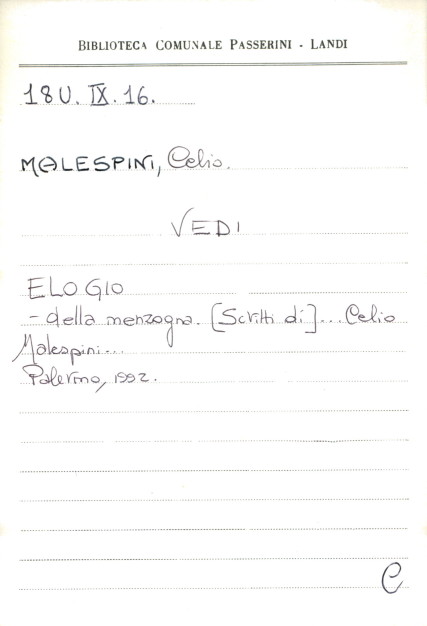 BIBLIOTECA COMUNALE PASSERINI - LANDI
18U. IX. 16.
MALESPINI, Celio.
VEDI
ELOGIO
- della menzogna. [Scritti di]... Celio
Malespini...
Palermo, 1992.
C